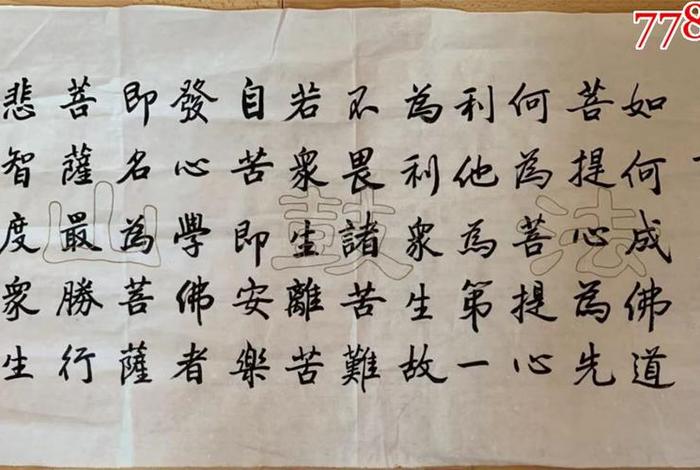 如何成佛道
菩提心為先
何為菩提心
利他為第一
為利眾生故
不畏諸苦難
若眾生離苦
自苦即安樂
發心學佛者
即名為菩薩
菩薩最勝行
悲智度眾生
法鼓山
778